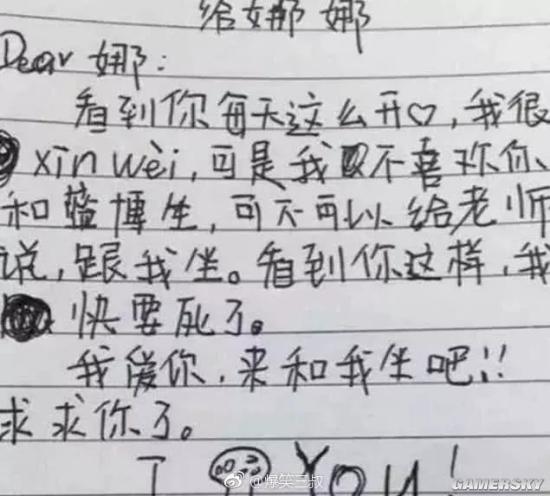 给娜娜
Dear 娜:
看到你每天这么开♡,我很
xīn wèi,可是我不喜欢你、
和蓝博生,可不可以给老师
说,跟我坐。看到你这样,我
快要死了。
我爱你,来和我坐吧!!
求求你了。
I You!
@爆笑三叔
GAMERSKY